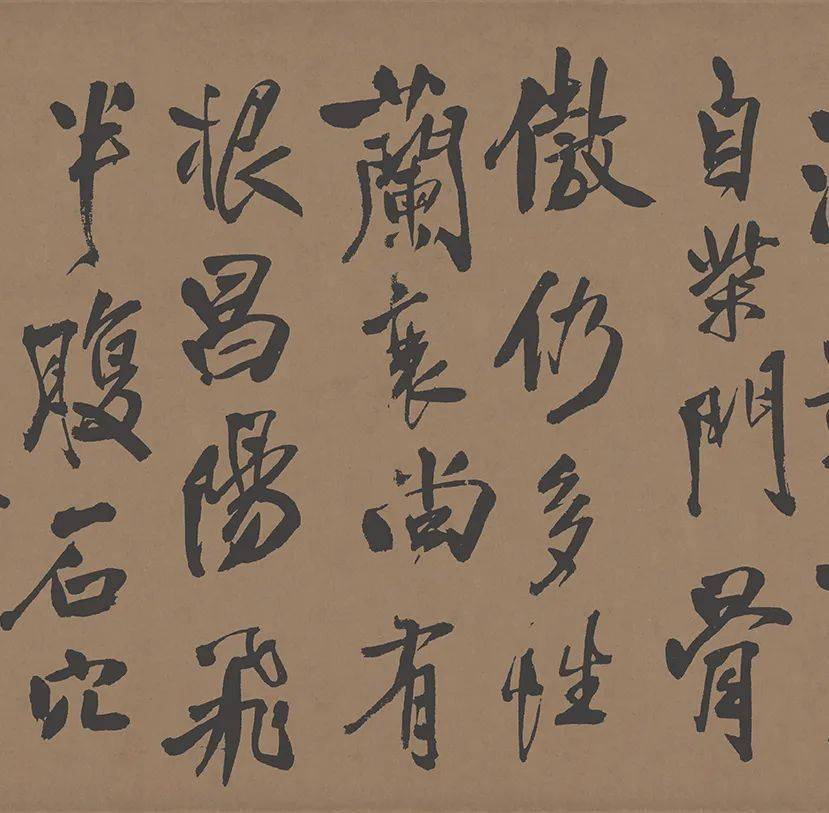 自柴門骨
傲仍多性
蘭衰尚有
根昌陽飛
半腹石穴